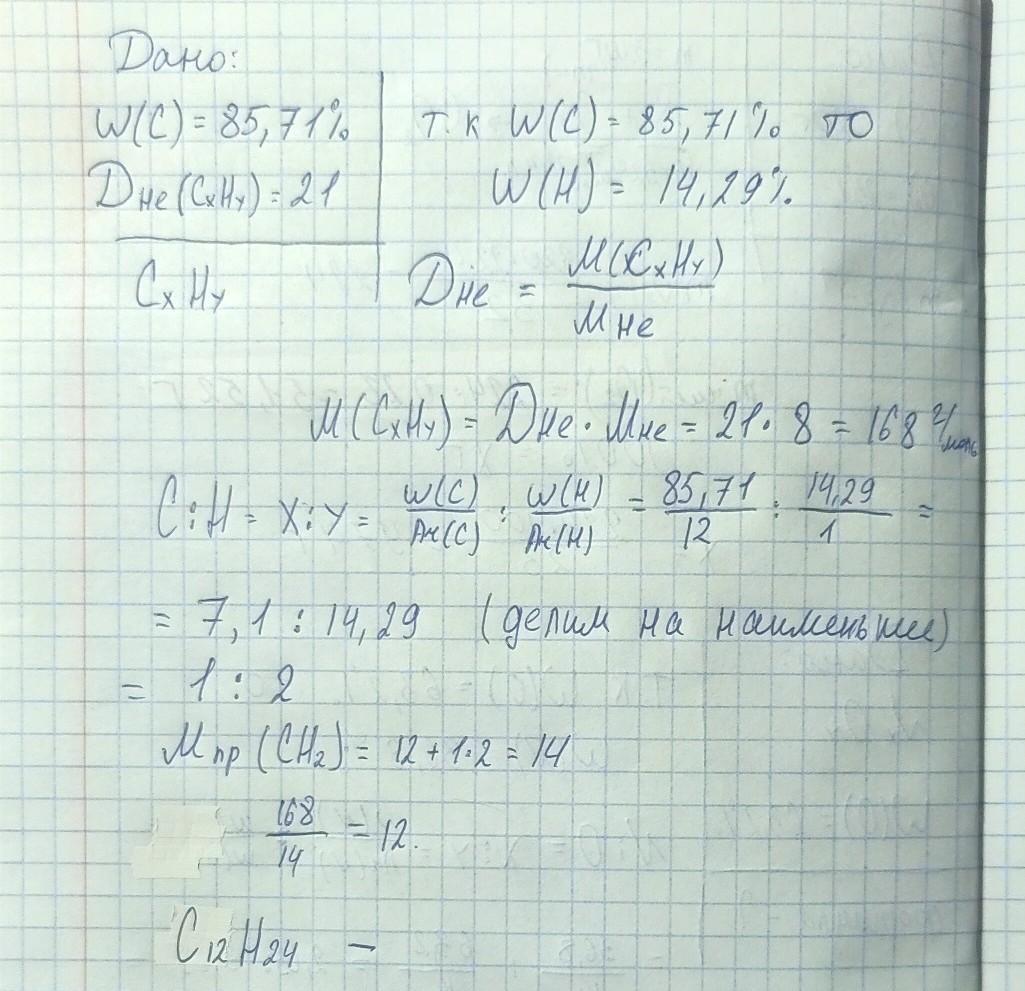 Дано:
W(C) = 85,71%
Dне(CxHy) = 21
CxHy
т.к W(C) = 85,71% то
W(H) = 14,29%.
Dне = M(CxHy) / Mне
M(CxHy) = Dне · Mне = 21 · 8 = 168 г/моль
C:H = X:Y = W(C)/Ar(C) : W(H)/Ar(H) = 85,71/12 : 14,29/1 =
= 7,1 : 14,29 (делим на наименьшее)
= 1 : 2
Mпр (CH2) = 12 + 1·2 = 14
168/14 = 12.
C12H24 –